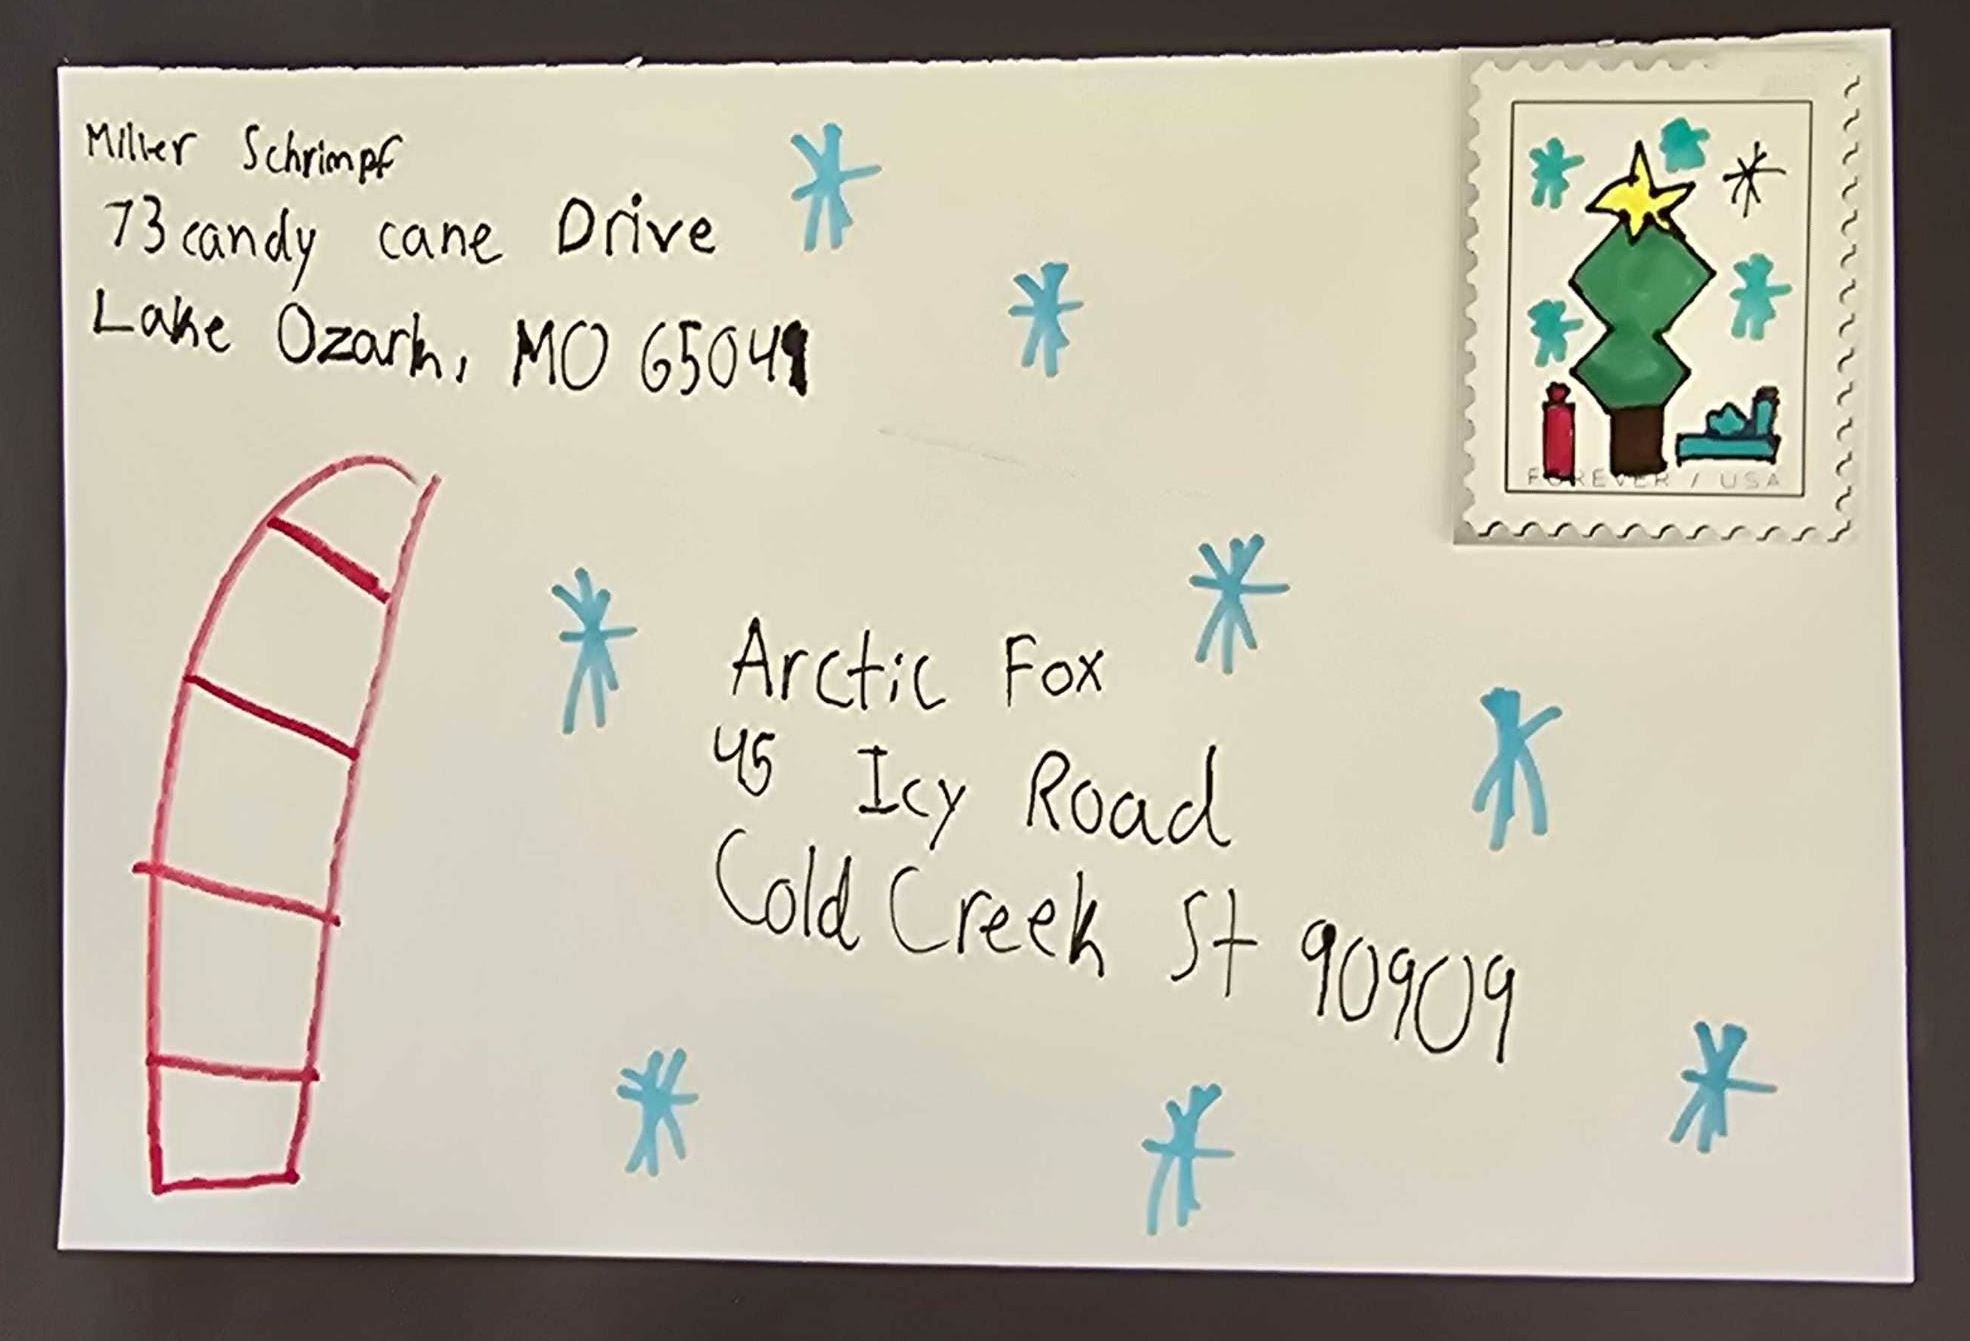 Miller Schrimpf
73 candy cane Drive
Lake Ozark, MO 65049
FOREVER / USA
Arctic Fox
45 Icy Road
Cold Creek St 90909